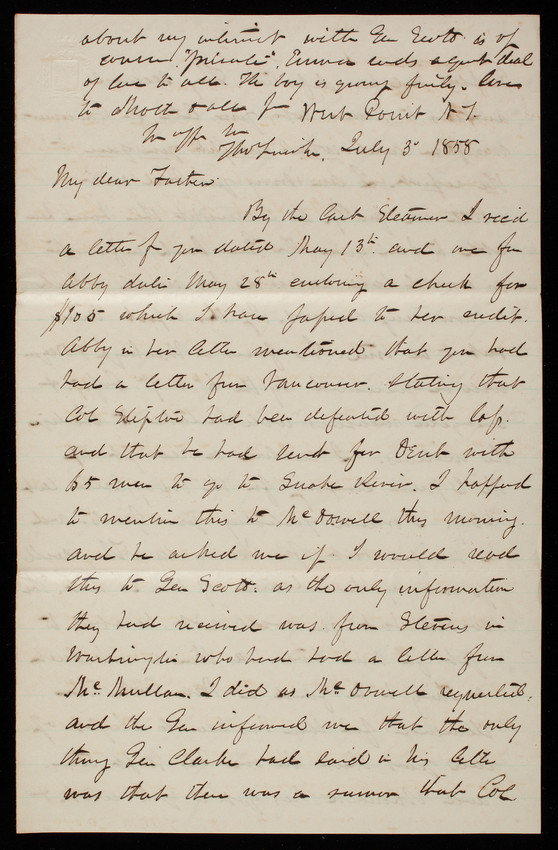 about my interest with Gen Scott is of
course "private". Emma sends a great deal
of love to all. The boy is growing finely. love
to all West Point N.Y.
Yr aff
Thos July 3d 1858
My dear Father
By the last Steamer I rec'd
a letter fr you dated May 13th and one fr
Abby date May 28th enclosing a check for
$105 which I have passed to her credit.
Abby in her letter mentioned that you had
had a letter from Vancouver. stating that
Col Steptoe had been defeated with loss.
and that he had sent for Dent with
65 men to go to Snake River. I happed
to mention this to McDowell this morning.
and he asked me if I would read
this to Gen Scott. as the only information
they had received was from Stevens in
Washington who had had a letter from
McMullan. I did as McDowell requested.
and the Gen informed me that the only
thing Gen Clarke had said in his letter
was that there was a rumor that Col